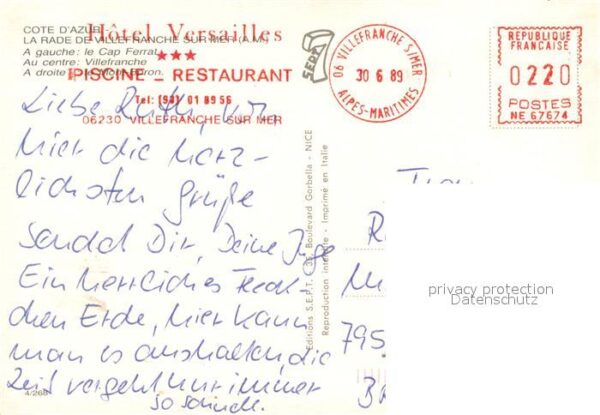 COTE D'AZUR
LA RADE DE VILLEFRANCHE SUR MER (A.M.)
A gauche: le Cap Ferrat
Au centre: Villefranche
A droite: le Mont Boron.
Hôtel Versailles
★★★
PISCINE - RESTAURANT
Tel: (93) 01 89 56
06230 VILLEFRANCHE SUR MER
SEPT
06 VILLEFRANCHE S/MER
30 6 89
ALPES-MARITIMES
REPUBLIQUE
FRANCAISE
0220
POSTES
NE 67674
Liebe Ruth, von
hier die herz-
lichsten Grüße
sendet Dir, Deine Inge
Ein herrliches Fleck-
chen Erde, hier kann
man es aushalten, die
Zeit vergeht nur immer
so schnell.
4/268
Editions S.E.P.T. Boulevard Gorbella - NICE
Reproduction interdite - Imprimé en Italie
R
M
795
B
privacy protection
Datenschutz